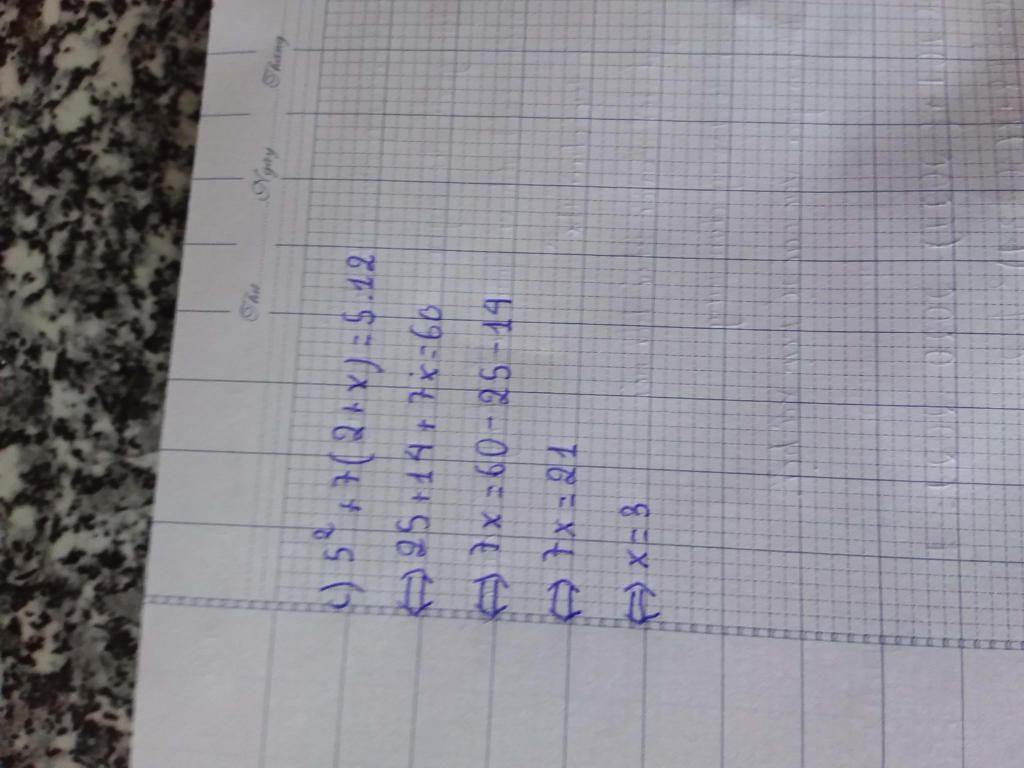 Thứ Ngày Tháng
c) 5² + 7(2+x) = 5.12
⇔ 25+14+7x=60
⇔ 7x=60-25-14
⇔ 7x=21
⇔ x=3